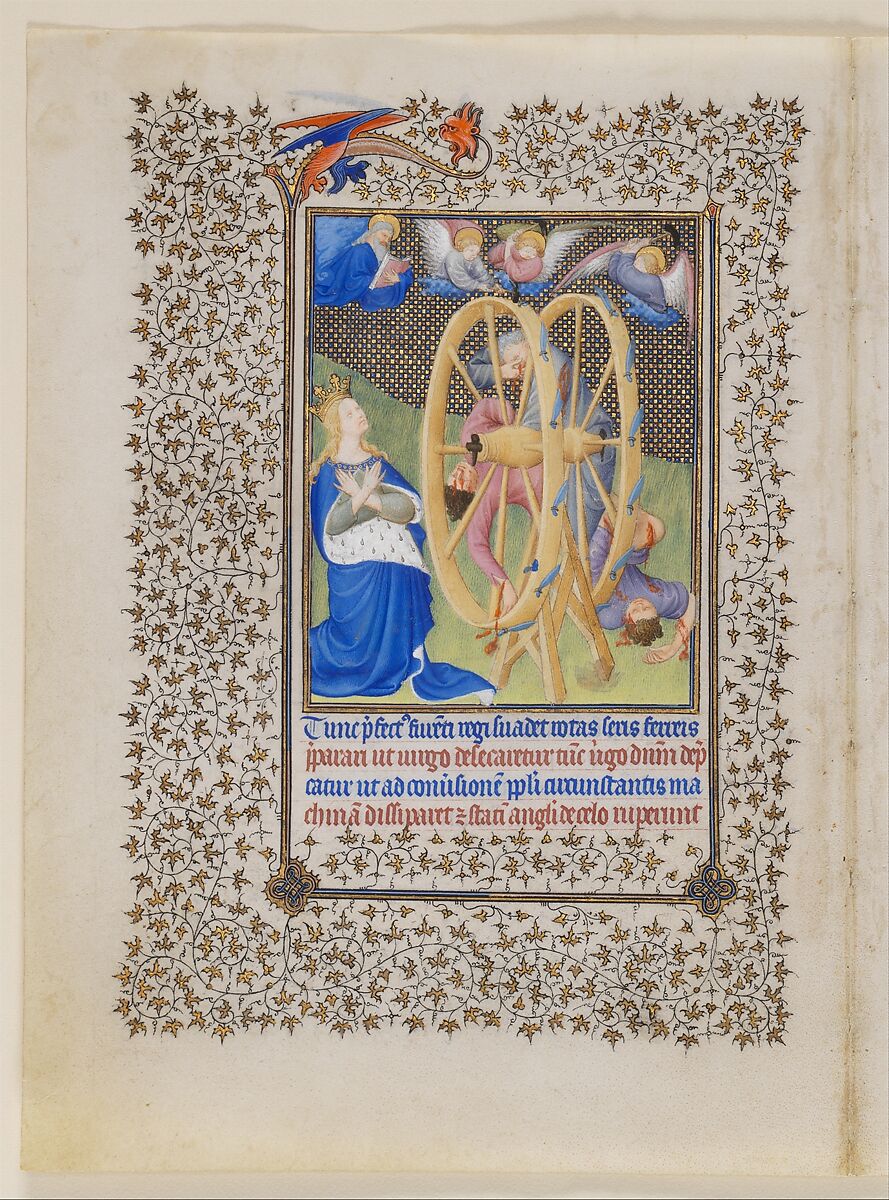 Tunc p̄fect⁹ furēti regi suadet rotas seris ferreis
p̄parari ut uirgo delecaretur tūc ūgo dnūm dep̄
catur ut ad conūsionē ppl̄i circunstantis ma
chinā dissiparet ⁊ statī angli de celo ruperunt